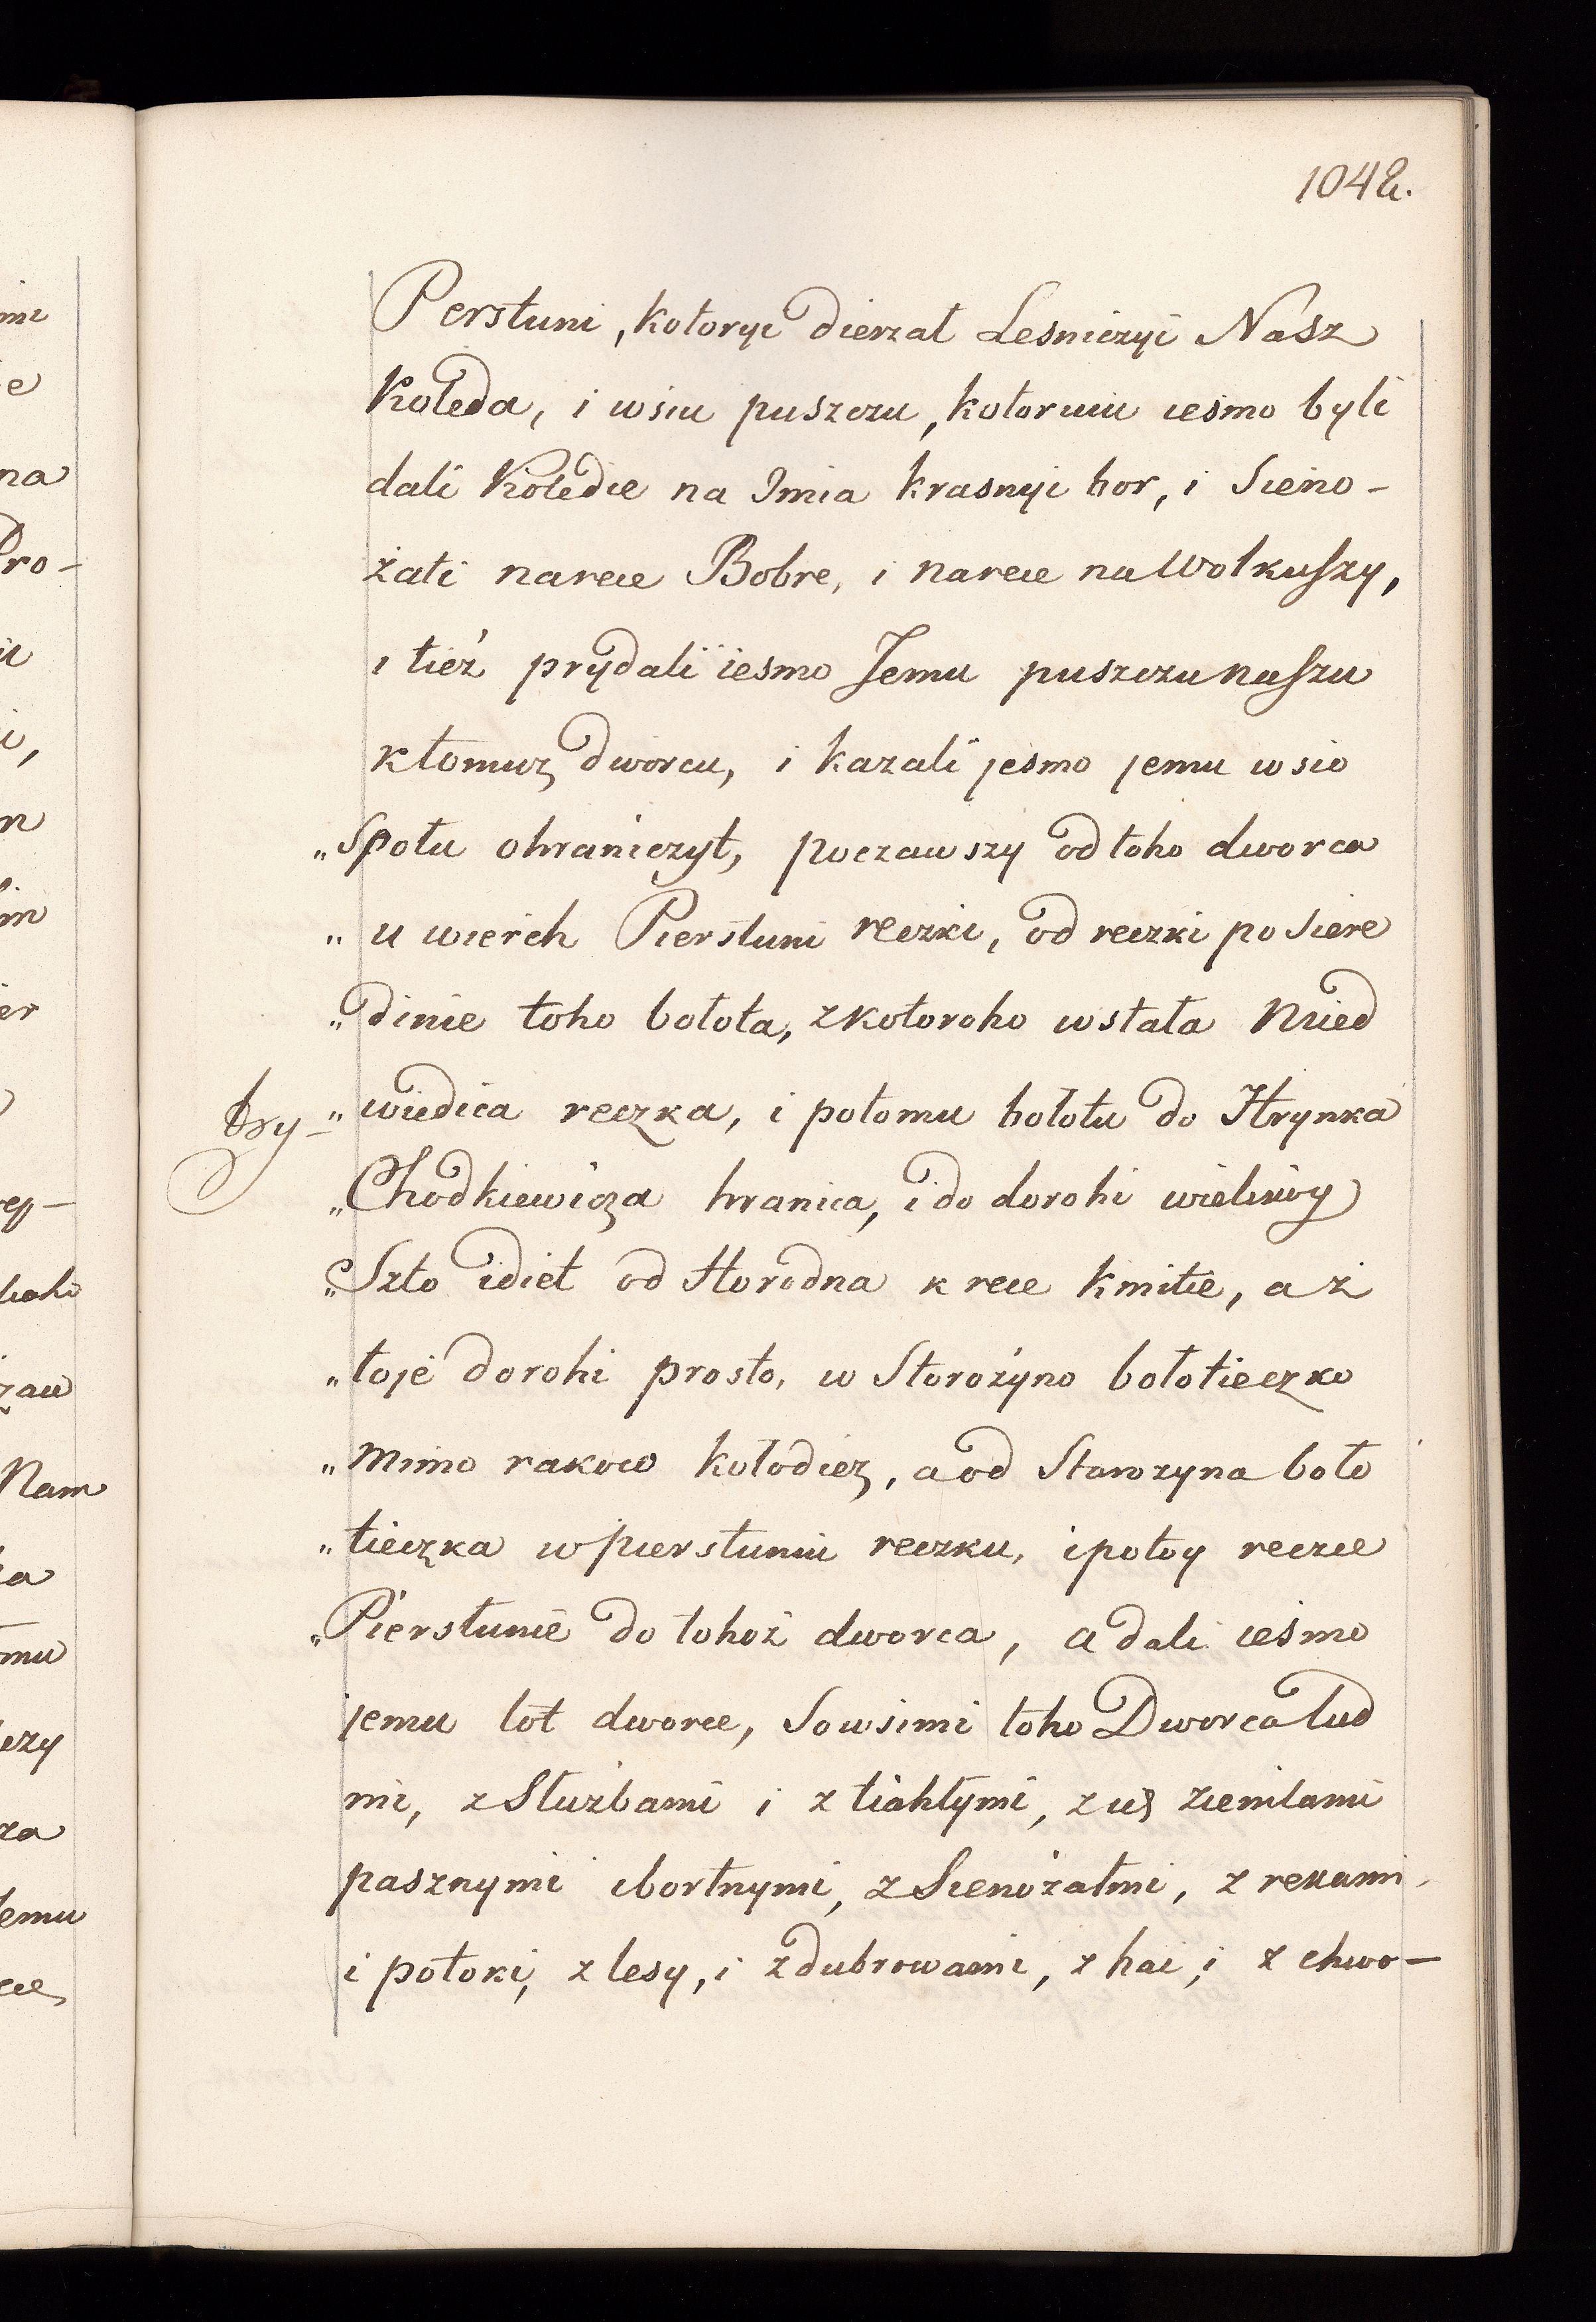 1042.
Perstuni, kotoryi dierzał Lesniczyi Nasz
Koleda, i wsiu puszczu, kotoruiu iesmo byli
dali Koledie na Imia krasnyi bor, i Sieno-
żati narece Bobre, i narece na Wołkuszy,
i tież prydali iesmo Jemu puszczu naszu
ktomuz dworcu, i kazali jesmo jemu wsio
„Społu ohraniczyt, poczawszy od toho dworca
„ u wierch Pierstuni reczki, od reczki po siere
„ dinie toho bołota, zkotoroho wstała Nied
bry- „ wiedica reczka, i potomu bołotu do Hrynka
„ Chodkiewicza hranica, i do dorohi wielikoy
„ Szto idiet od Horodna k rece kmitie, a z
„ toje dorohi prosto, w Storożyno bołotieczko
„ mimo rakow kołodiez, a od Storozyna boło
„ tieczka w pierstuniu reczku, i potoy reczce
„ Pierstunie do tohoż dworca, a dali iesmo
jemu tot dworec, Sowsimi toho Dworca lud
mi, z Służbami i z tiahłymi, z ziemlami
pasznymi i bortnymi, z Sienożatmi, z rekami
i potoki, z lesy, i z dubrowami, z hai, i z chwo-